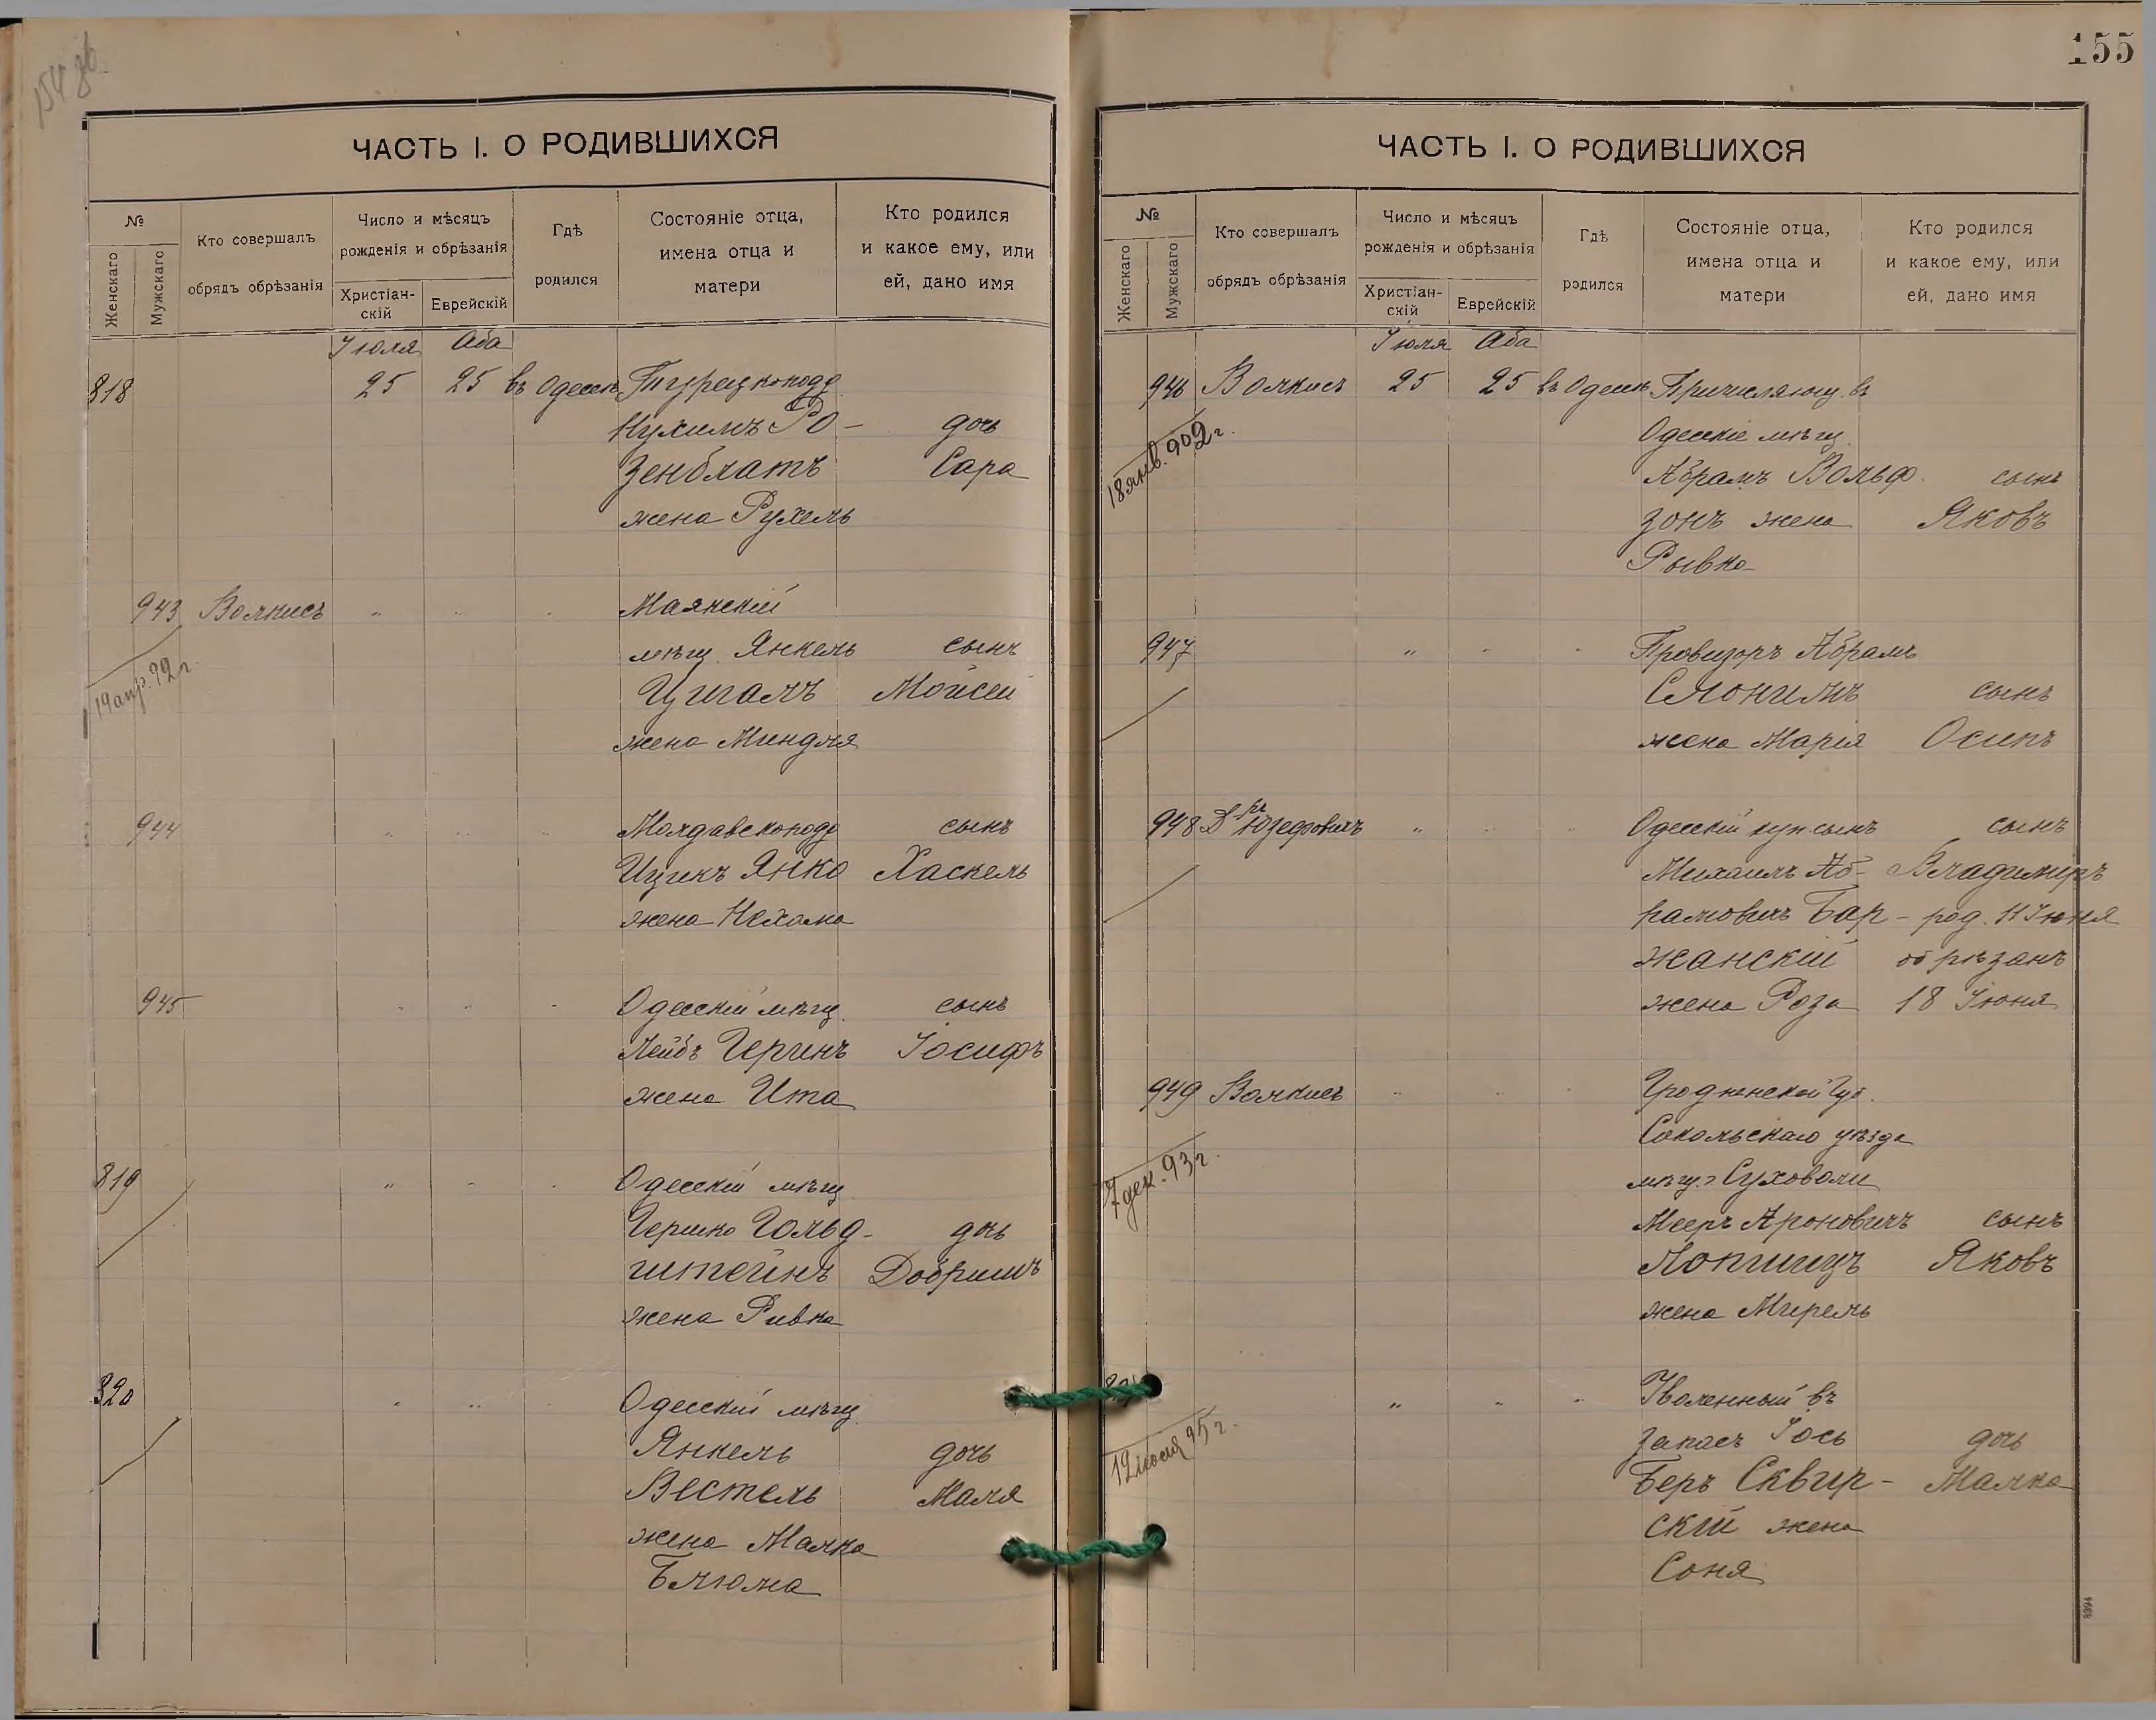 ЧАСТЬ I. О РОДИВШИХСЯ
№
Женскаго
Мужскаго
Кто совершалъ
обрядъ обрѣзанія
Число и мѣсяцъ
рожденія и обрѣзанія
Христіан-
скій
Еврейскій
Гдѣ
родился
Состояніе отца,
имена отца и
матери
Кто родился
и какое ему, или
ей, дано имя
Іюля Аба
818 25 25 въ Одессѣ Турецкоподд
Нухимъ Ро-
дочь
зенблатъ Сара
жена Рухель
943 Волкисъ " " " Маякскій
19 апр. 92 г.
мѣщ. Янкель сынъ
Цигалъ Мойсей
жена Миндля
944 " " " Молдавскопод сынъ
Ицикъ Янко Хаскель
жена Нехама
945 " " " Одесскій мѣщ. сынъ
Лейбъ Геринъ Іосифъ
жена Ита
819 " " " Одесскій мѣщ
Гершко Гольд- дочь
штейнъ Добришъ
жена Ривка
820 " " " Одесскій мѣщ.
Янкель дочь
Вестель Маля
жена Малка
Блюма
155
ЧАСТЬ I. О РОДИВШИХСЯ
№
Женскаго
Мужскаго
Кто совершалъ
обрядъ обрѣзанія
Число и мѣсяцъ
рожденія и обрѣзанія
Христіан-
скій
Еврейскій
Гдѣ
родился
Состояніе отца,
имена отца и
матери
Кто родился
и какое ему, или
ей, дано имя
Іюля Аба
946 Волкисъ 25 25 въ Одессѣ Причисляющ. въ
18 янв. 902 г.
Одесскіе мѣщ.
Абрамъ Вольф- сынъ
зонъ жена Яковъ
Рывка
947 " " " Провизоръ Абрамъ
Слонимъ сынъ
жена Марія Осипъ
948 Дръ Юзефовичъ " " " Одесскій куп. сынъ сынъ
Михаилъ Аб- Владимиръ
рамовичъ Бар- род. 11 Іюня
жанскій обрѣзанъ
жена Роза 18 Іюня
949 Волкисъ " " " Гродненской Губ.
Сокольскаго уѣзда
7 дек. 93 г.
мѣщ. Суховоли
Мееръ Ароновичъ сынъ
Яковъ
жена Мирель
" " " Уволенный въ
запасъ Іось дочь
95 г.
Беръ Сквир- Малка
скій жена
Соня